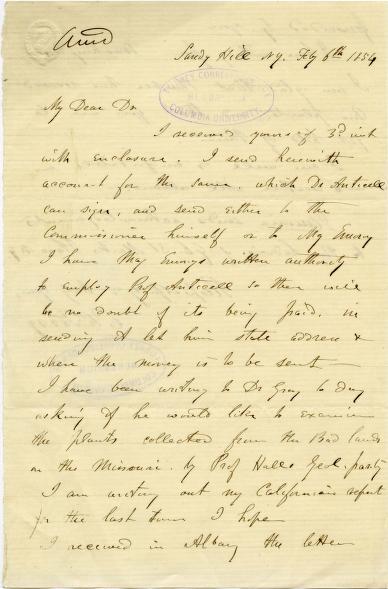 Ansd
Sandy Hill N.Y. Feby 6th 1854
TORREY CORRESPONDENCE
COLUMBIA UNIVERSITY.
My Dear Dr.
I received yours of 3d inst
with enclosure. I send herewith
account for the same, which Dr Antisell
can sign, and send either to the
Commissioner himself or to Maj Emory
I have Maj Emorys written authority
to employ Prof Antisell so there will
be no doubt of its being paid, in
sending it let him state address &
where the money is to be sent
I have been writing to Dr Gray to day
asking if he would like to examine
the plants collected from the Bad lands
on the Missouri by Prof Halls Geol. party
I am writing out my Californian report
for the last time I hope
I received in Albany the letter